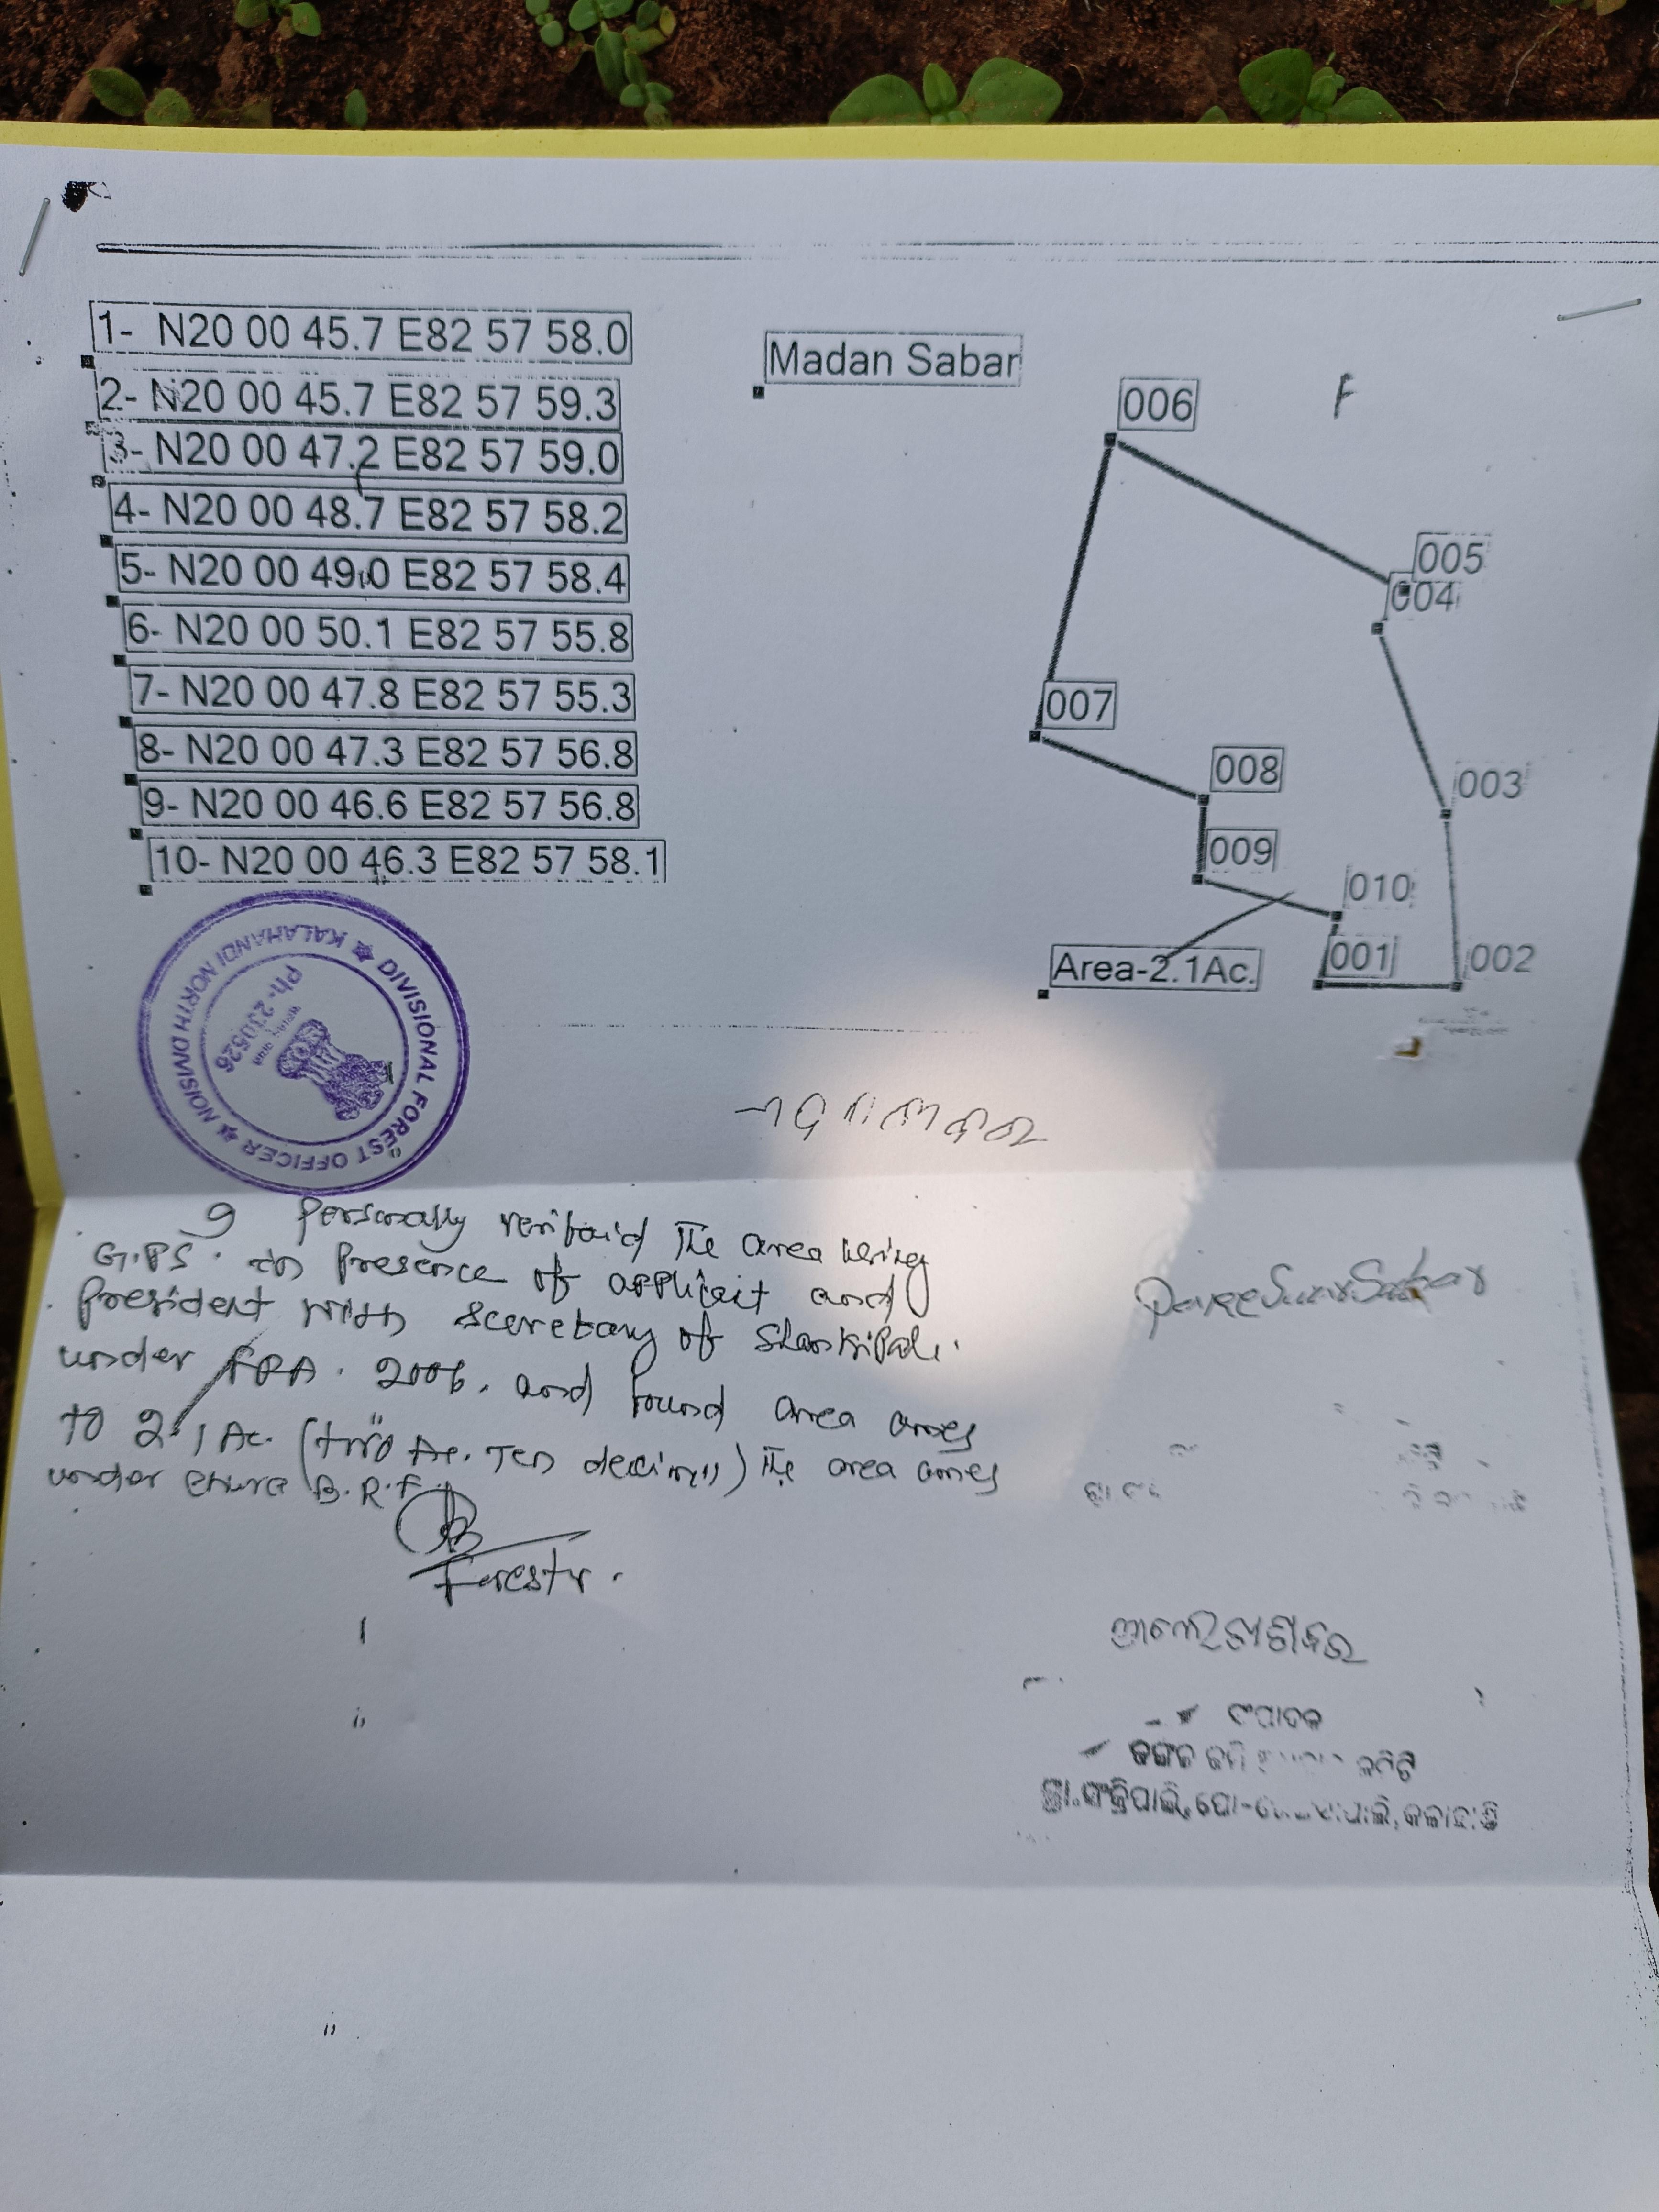 1- N20 00 45.7 E82 57 58.0
2- N20 00 45.7 E82 57 59.3
3- N20 00 47.2 E82 57 59.0
4- N20 00 48.7 E82 57 58.2
5- N20 00 49.0 E82 57 58.4
6- N20 00 50.1 E82 57 55.8
7- N20 00 47.8 E82 57 55.3
8- N20 00 47.3 E82 57 56.8
9- N20 00 46.6 E82 57 56.8
10- N20 00 46.3 E82 57 58.1
Madan Sabar
F
006
005
004
007
003
008
009
010
001
002
Area-2.1Ac.
DIVISIONAL FOREST OFFICER
KALAHANDI NORTH DIVISION
Ph-230526
I Personally verifaid The area using
G.P.S. in Presence of applicit and
President with sceretary of
under FRA. 2006. and found area
to 2.1 Ac. (two Ac. Ten ) The area
under B.R.F.
Forestr.
Sabar
ସଂପାଦକ
ଜଙ୍ଗଲ ଜମି କମିଟି
କଳାହାଣ୍ଡି